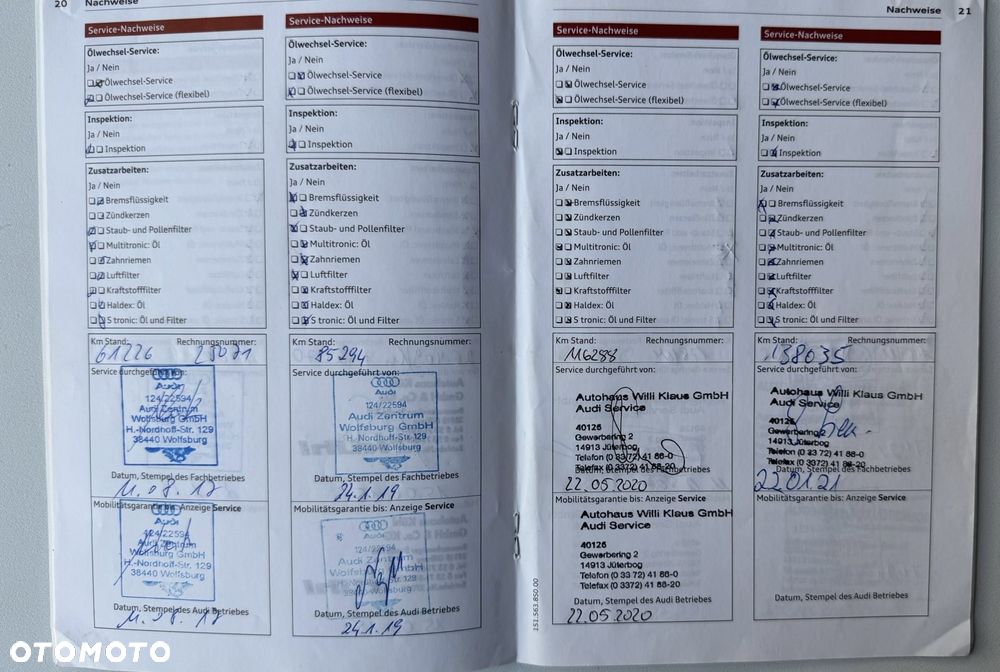 20
Nachweise
Service-Nachweise
Ölwechsel-Service:
Ja / Nein
Ölwechsel-Service
Ölwechsel-Service (flexibel)
Inspektion:
Ja / Nein
Inspektion
Zusatzarbeiten:
Ja / Nein
Bremsflüssigkeit
Zündkerzen
Staub- und Pollenfilter
Multitronic: Öl
Zahnriemen
Luftfilter
Kraftstofffilter
Haldex: Öl
S tronic: Öl und Filter
Km Stand: Rechnungsnummer:
61226
Service durchgeführt von:
Audi
124/22594
Audi Zentrum
Wolfsburg GmbH
H.-Nordhoff-Str. 129
38440 Wolfsburg
Datum, Stempel des Fachbetriebes
11.08.17
Mobilitätsgarantie bis: Anzeige Service
Audi
124/22594
Audi Zentrum
Wolfsburg GmbH
H.-Nordhoff-Str. 129
38440 Wolfsburg
Datum, Stempel des Audi Betriebes
11.08.17
Service-Nachweise
Ölwechsel-Service:
Ja / Nein
Ölwechsel-Service
Ölwechsel-Service (flexibel)
Inspektion:
Ja / Nein
Inspektion
Zusatzarbeiten:
Ja / Nein
Bremsflüssigkeit
Zündkerzen
Staub- und Pollenfilter
Multitronic: Öl
Zahnriemen
Luftfilter
Kraftstofffilter
Haldex: Öl
S tronic: Öl und Filter
Km Stand: Rechnungsnummer:
85294
Service durchgeführt von:
Audi
124/22594
Audi Zentrum
Wolfsburg GmbH
H. Nordhoff-Str. 129
38440 Wolfsburg
Datum, Stempel des Fachbetriebes
24.1.19
Mobilitätsgarantie bis: Anzeige Service
Audi
124/22594
Audi Zentrum
Wolfsburg GmbH
H. Nordhoff-Str. 129
38440 Wolfsburg
Datum, Stempel des Audi Betriebes
24.1.19
Nachweise
21
Service-Nachweise
Ölwechsel-Service:
Ja / Nein
Ölwechsel-Service
Ölwechsel-Service (flexibel)
Inspektion:
Ja / Nein
Inspektion
Zusatzarbeiten:
Ja / Nein
Bremsflüssigkeit
Zündkerzen
Staub- und Pollenfilter
Multitronic: Öl
Zahnriemen
Luftfilter
Kraftstofffilter
Haldex: Öl
S tronic: Öl und Filter
Km Stand: Rechnungsnummer:
116288
Service durchgeführt von:
Autohaus Willi Klaus GmbH
Audi Service
40126
Gewerbering 2
14913 Jüterbog
Telefon (0 33 72) 41 88-0
Telefax (0 3372) 41 88-20
Datum, Stempel des Fachbetriebes
22.05.2020
Mobilitätsgarantie bis: Anzeige Service
Autohaus Willi Klaus GmbH
Audi Service
40126
Gewerbering 2
14913 Jüterbog
Telefon (0 33 72) 41 88-0
Telefax (0 3372) 41 88-20
Datum, Stempel des Audi Betriebes
22.05.2020
151.563.850.00
Service-Nachweise
Ölwechsel-Service:
Ja / Nein
Ölwechsel-Service
Ölwechsel-Service (flexibel)
Inspektion:
Ja / Nein
Inspektion
Zusatzarbeiten:
Ja / Nein
Bremsflüssigkeit
Zündkerzen
Staub- und Pollenfilter
Multitronic: Öl
Zahnriemen
Luftfilter
Kraftstofffilter
Haldex: Öl
S tronic: Öl und Filter
Km Stand: Rechnungsnummer:
138035
Service durchgeführt von:
Autohaus Willi Klaus GmbH
Audi Service
40126
Gewerbering 2
14913 Jüterbog
Telefon (0 33 72) 41 88-0
Telefax (0 3372) 41 88-20
Datum, Stempel des Fachbetriebes
220121
Mobilitätsgarantie bis: Anzeige Service
Datum, Stempel des Audi Betriebes
OTOMOTO